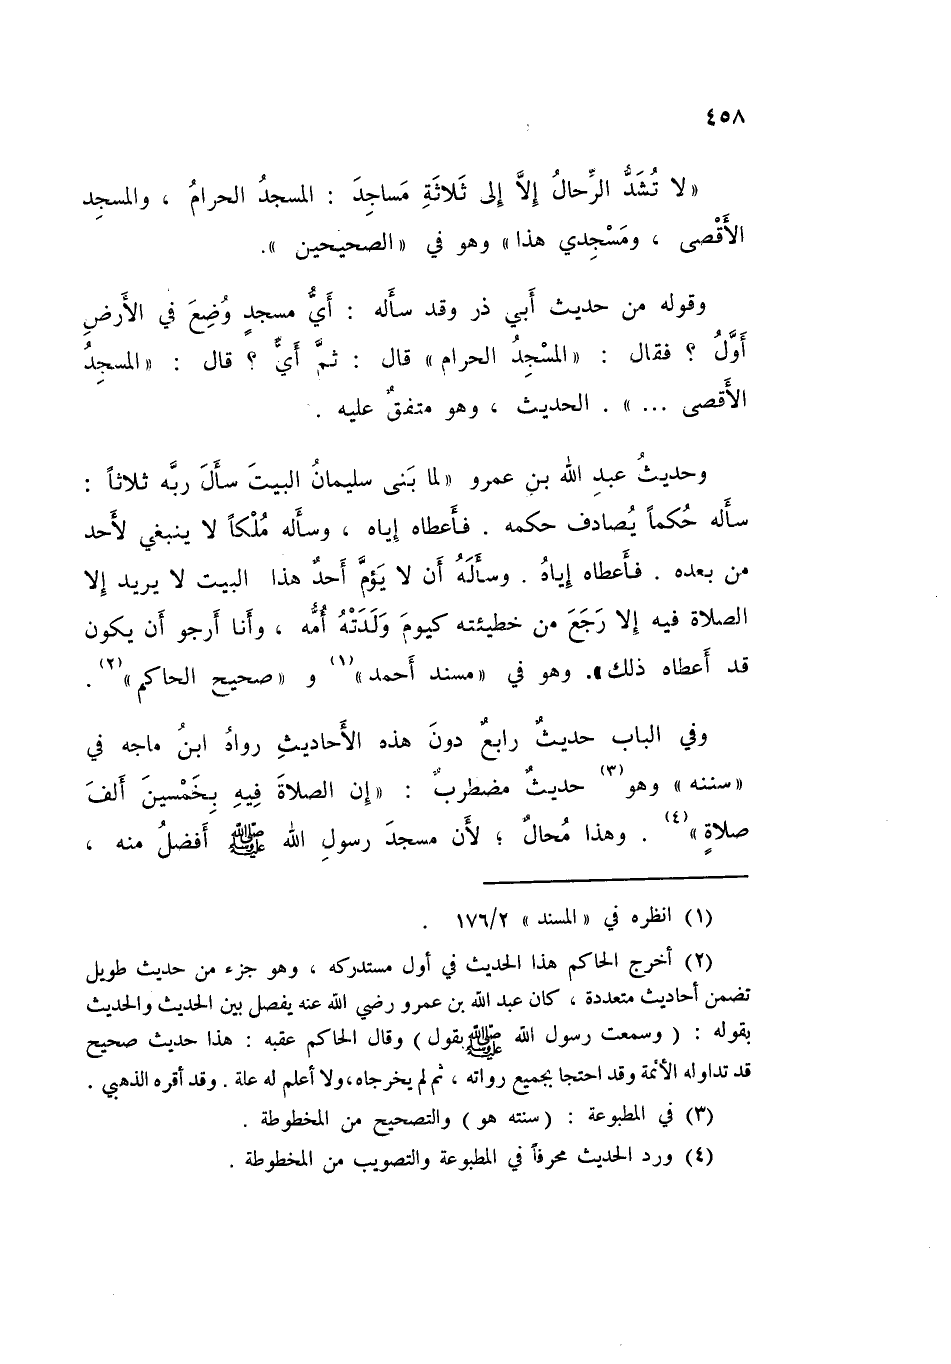 ٤٥٨
« لا تُشَدُّ الرِّحالُ إِلاَّ إِلى ثَلاثَةِ مَساجِدَ : المسجدُ الحرامُ ، والمسجدِ
الأَقْصى ، ومَسْجِدي هذا » وهو في « الصحيحين » .
وقوله من حديث أَبي ذر وقد سأَله : أَيُّ مسجدٍ وُضِعَ في الأَرضِ
أَوَّلُ ؟ فقال : « المسْجِدُ الحرام » قال : ثمَّ أَيٌّ ؟ قال : « المسجدُ
الأَقصى ... » . الحديث ، وهو متفقٌ عليه .
وحديثُ عبدِ الله بنِ عمرو « لما بَنى سليمانُ البيتَ سأَلَ ربَّه ثلاثاً :
سأَله حُكماً يُصادف حكمه . فأَعطاه إِياه ، وسأَله مُلْكاً لا ينبغي لأَحد
من بعده . فأَعطاه إِياهُ . وسأَلَهُ أَن لا يَؤمَّ أَحدٌ هذا البيت لا يريد إِلا
الصلاة فيه إِلا رَجَعَ من خطيئته كيومَ وَلَدَتْهُ أُمُّه ، وأَنا أَرجو أَن يكون
قد أَعطاه ذلك » . وهو في « مسند أَحمد »(١) و « صحيح الحاكم »(٢) .
وفي الباب حديثٌ رابعٌ دونَ هذه الأَحاديثِ رواهُ ابنُ ماجه في
« سننه » وهو(٣) حديثٌ مضطربٌ : « إِن الصلاةَ فِيهِ بِخَمْسينَ أَلفَ
صلاةٍ »(٤) . وهذا مُحالٌ ؛ لأَن مسجدَ رسولِ الله ﷺ أَفضلُ منه ،
(١) انظره في « المسند » ١٧٦/٢ .
(٢) أخرج الحاكم هذا الحديث في أول مستدركه ، وهو جزء من حديث طويل
تضمن أحاديث متعددة ، كان عبد الله بن عمرو رضي الله عنه يفصل بين الحديث والحديث
بقوله : ( وسمعت رسول الله ﷺ يقول ) وقال الحاكم عقبه : هذا حديث صحيح
قد تداوله الأئمة وقد احتجا بجميع رواته ، ثم لم يخرجاه ، ولا أعلم له علة . وقد أقره الذهبي .
(٣) في المطبوعة : ( سنته هو ) والتصحيح من المخطوطة .
(٤) ورد الحديث محرفاً في المطبوعة والتصويب من المخطوطة .